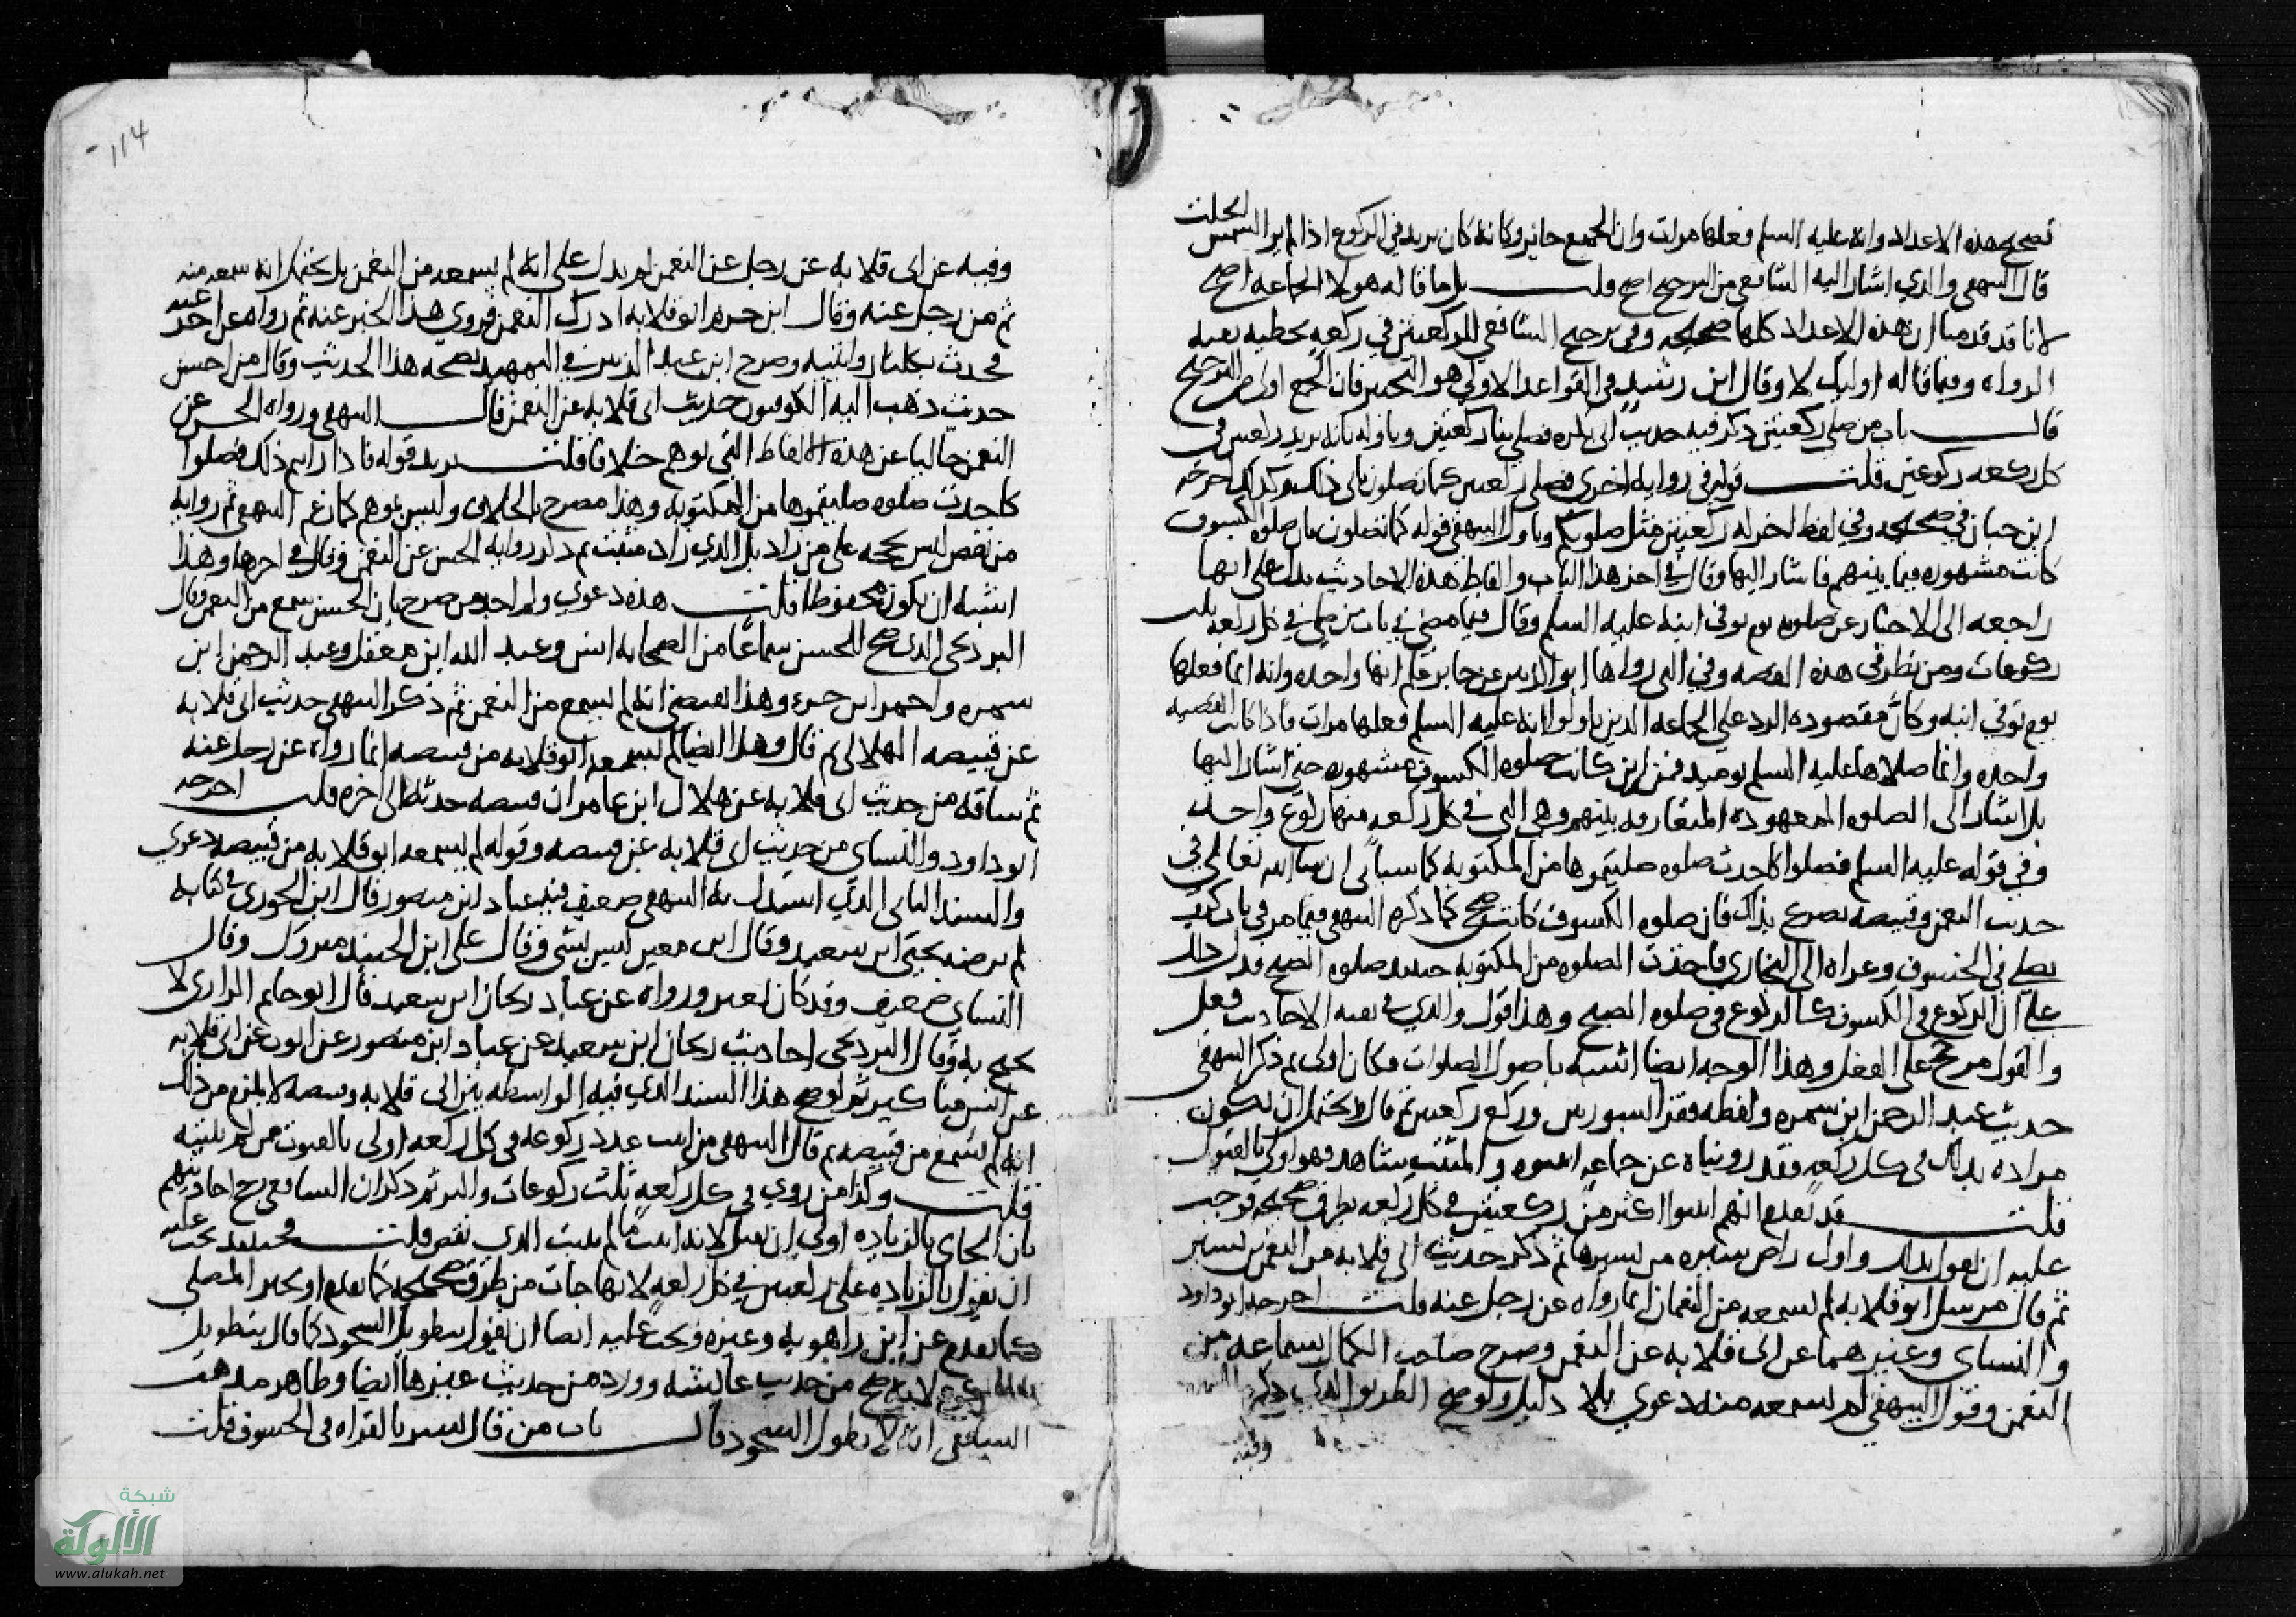 تصحيح هذه الاعداد وانه عليه السلم فعلها مرات وان الجميع جايز وكانه كان يزيد في الركوع اذا لم ير الشمس انجلت
قال البيهقي والذي اشار اليه الشافعي من الترجيح اصح قلت بل ما قاله هولا الجماعه اصح
لانا قد قدمنا ان هذه الاعداد كلها صحيحه وفي ترجيح الشافعي الركعتين في ركعه تخطيه بقيه
الرواه وفيما قاله اوليك لا وقال ابن رشد في القواعد الاولى هو التخيير فان الجمع اولى من الترجيح
قال باب من صلى ركعتين ذكر فيه حديث ابي بكره فصلى بنا ركعتين وتاوله بانه يريد ركعتين في
كل ركعه ركوعين قلت قوله في روايه اخرى فصلى ركعتين كما تصلون ينافي ذلك وكذلك اخرجه
ابن حبان في صحيحه وفي لفظ اخر له ركعتين مثل صلوتكم وتاول البيهقي قوله كما تصلون بان صلوه الكسوف
كانت مشهوره فيما بينهم فاشار اليها وقال في اخر هذا الباب والفاظ هذه الاحاديث يدل على انها
راجعه الى الاخبار عن صلوته يوم توفي ابنه عليه السلم وقال فيما مضى في باب من صلى في كل ركعه ثلث
ركوعات ومن نظر في هذه القصه وفي التي رواها ابو الزبير عن جابر علم انها واحده وانه انما فعلها
يوم توفي ابنه وكان مقصوده الرد على الجماعه الذين تاولوا انه عليه السلم فعلها مرات فاذا كانت القضيه
واحده وانما صلاها عليه السلم يوميد فمن اين كانت صلوه الكسوف مشهوره حتى اشار اليها
بل اشار الى الصلوه المعهوده المتعارفه بينهم وهي التي في كل ركعه منها ركوع واحد
وفي قوله عليه السلم فصلوا كاحدث صلوه صليتموها من المكتوبه كما سياتي ان شا الله تعالى في
حديث النعمن وقبيصه تصريح بذلك فان صلوه الكسوف كانت ضحى كما ذكره البيهقي فيما مر في باب كيف
يصلي في الخسوف وعزاه الى البخاري فاحدث الصلوه من المكتوبه حينيد صلوه الصبح فدل ذلك
على ان الركوع في الكسوف كالركوع في صلوه الصبح وهذا قول والذي في بقيه الاحاديث فعل
والقول مرجح على الفعل وهذا الوجه ايضا اشبه باصول الصلوات فكان اولى ثم ذكر البيهقي
حديث عبد الرحمن ابن سمره ولفظه فقرا السورتين وركع ركعتين ثم قال يحتمل ان يكون
مراده بذلك في كل ركعه فقد رويناه عن جماعه اثبتوه والمثبت شاهد فهو اولى بالقبول
قلت قد تقدم انهم اثبتوا اكثر من ركعتين في كل ركعه بطرق صحيحه فوجب
عليه ان يقول بذلك واول راض سيره من يسيرها ثم ذكر حديث ابي قلابه عن النعمن بن بشير
ثم قال مرسل ابو قلابه لم يسمعه من النعمان انما رواه عن رجل عنه قلت اخرجه ابو داود
والنساي وغيرهما عن ابي قلابه عن النعمن وصرح صاحب الكمال بسماعه من
النعمن وقول البيهقي لم يسمعه منه دعوى بلا دليل ولو صح الطريق الذي ذكره
وفيه
114
وفيه عن ابي قلابه عن رجل عن النعمن لم يدل على انه لم يسمعه من النعمن بل يحتمل انه سمعه منه
ثم من رجل عنه وقال ابن حزم ابو قلابه ادرك النعمن فروى هذا الخبر عنه ثم رواه عن اخر عنه
فحدث بكلتا روايتيه وصرح ابن عبد البر في التمهيد بصحه هذا الحديث وقال من احسن
حديث ذهب اليه الكوفيون حديث ابي قلابه عن النعمن قال البيهقي ورواه الحسن عن
النعمن خاليا عن هذه الالفاظ التي توهم خلافا قلت يريد قوله فاذا رايتم ذلك فصلوا
كاحدث صلوه صليتموها من المكتوبه وهذا مصرح بالخلاف وليس بموهم كما زعم البيهقي ثم روايه
من نقص ليس بحجه على من زاد بل الذي زاد مثبت ثم ذكر روايه الحسن عن النعمن وقال في اخرها وهذا
اشبه ان يكون محفوظا قلت هذه دعوى ولم اجد من صرح بان الحسن سمع من النعمن وقال
البرديجي الذي صح للحسن سماعا من الصحابه انس وعبد الله ابن مغفل وعبد الرحمن ابن
سمره واحمر ابن جزء وهذا يقتضي انه لم يسمع من النعمن ثم ذكر البيهقي حديث ابي قلابه
عن قبيصه الهلالي ثم قال وهذا ايضا لم يسمعه ابو قلابه من قبيصه انما رواه عن رجل عنه
ثم ساقه من حديث ابي قلابه عن هلال ابن عامر ان قبيصه حدثه الى اخره قلت اخرجه
ابو داود والنساي من حديث ابي قلابه عن قبيصه وقوله لم يسمعه ابو قلابه من قبيصه دعوى
والسند الثاني الذي استدل به البيهقي ضعيف فيه عباد ابن منصور قال ابن الجوزي في كتابه
لم يرضه يحيى ابن سعيد وقال ابن معين ليس بشي وقال علي ابن الجنيد متروك وقال
النساي ضعيف وقد كان تغير ورواه عن عباد ريحان ابن سعيد قال ابو حاتم الرازي لا
يحتج به وقال البرديجي احاديث ريحان ابن سعيد عن عباد ابن منصور عن ايوب عن ابي قلابه
عن انس مناكير ثم لو صح هذا السند الذي فيه الواسطه بين ابي قلابه وقبيصه لا يلزم من ذلك
انه لم يسمع من قبيصه ثم قال البيهقي من اثبت عدد ركوعه في كل ركعه اولى بالقبول ممن لم يثبته
قلت وكذا من روى في كل ركعه ثلث ركوعات واكثر ثم ذكر ان الشافعي رجح احاديثهم
بان الجاي بالزياده اولى ان يقبل لانه اثبت ما لم يثبت الذي نقص قلت فحينيد يجب عليه
ان يقول بالزياده على ركعتين في كل ركعه لانها جات من طرق صحيحه كما تقدم او يخير المصلي
كما تقدم عن ابن راهويه وغيره ويجب عليه ايضا ان يقول بتطويل السجود كما قال بتطويل
الركوع لانه صح من حديث عايشه وورد من حديث غيرها ايضا وظاهر مذهب
الشافعي انه لا يطول السجود قال باب من قال يسر بالقراه في الخسوف قلت
شبكة
الألوكة
www.alukah.net